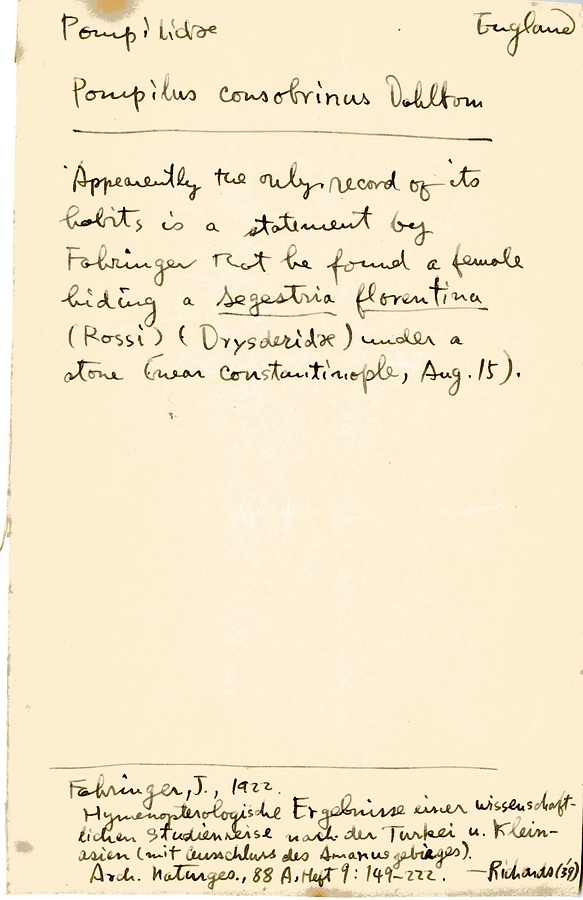 Pompilidæ England
Pompilus consobrinus Dahlbom
Apparently the only record of its
habits is a statement by
Fahringer that he found a female
hiding a Segestria florentina
(Rossi) (Drysderidæ) under a
stone (near Constantinople, Aug. 15).
Fahringer, J., 1922.
Hymenopterologische Ergebnisse einer wissenschaft-
lichen Studienreise nach der Türkei u. Klein-
asien (mit Ausschluss des Amanusgebirges).
Arch. Naturges., 88 A, Heft 9: 149-222. —Richards ('39)